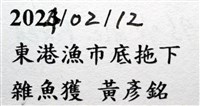 2024/02/12
東港漁市底拖下
雜魚獲 黃彥銘